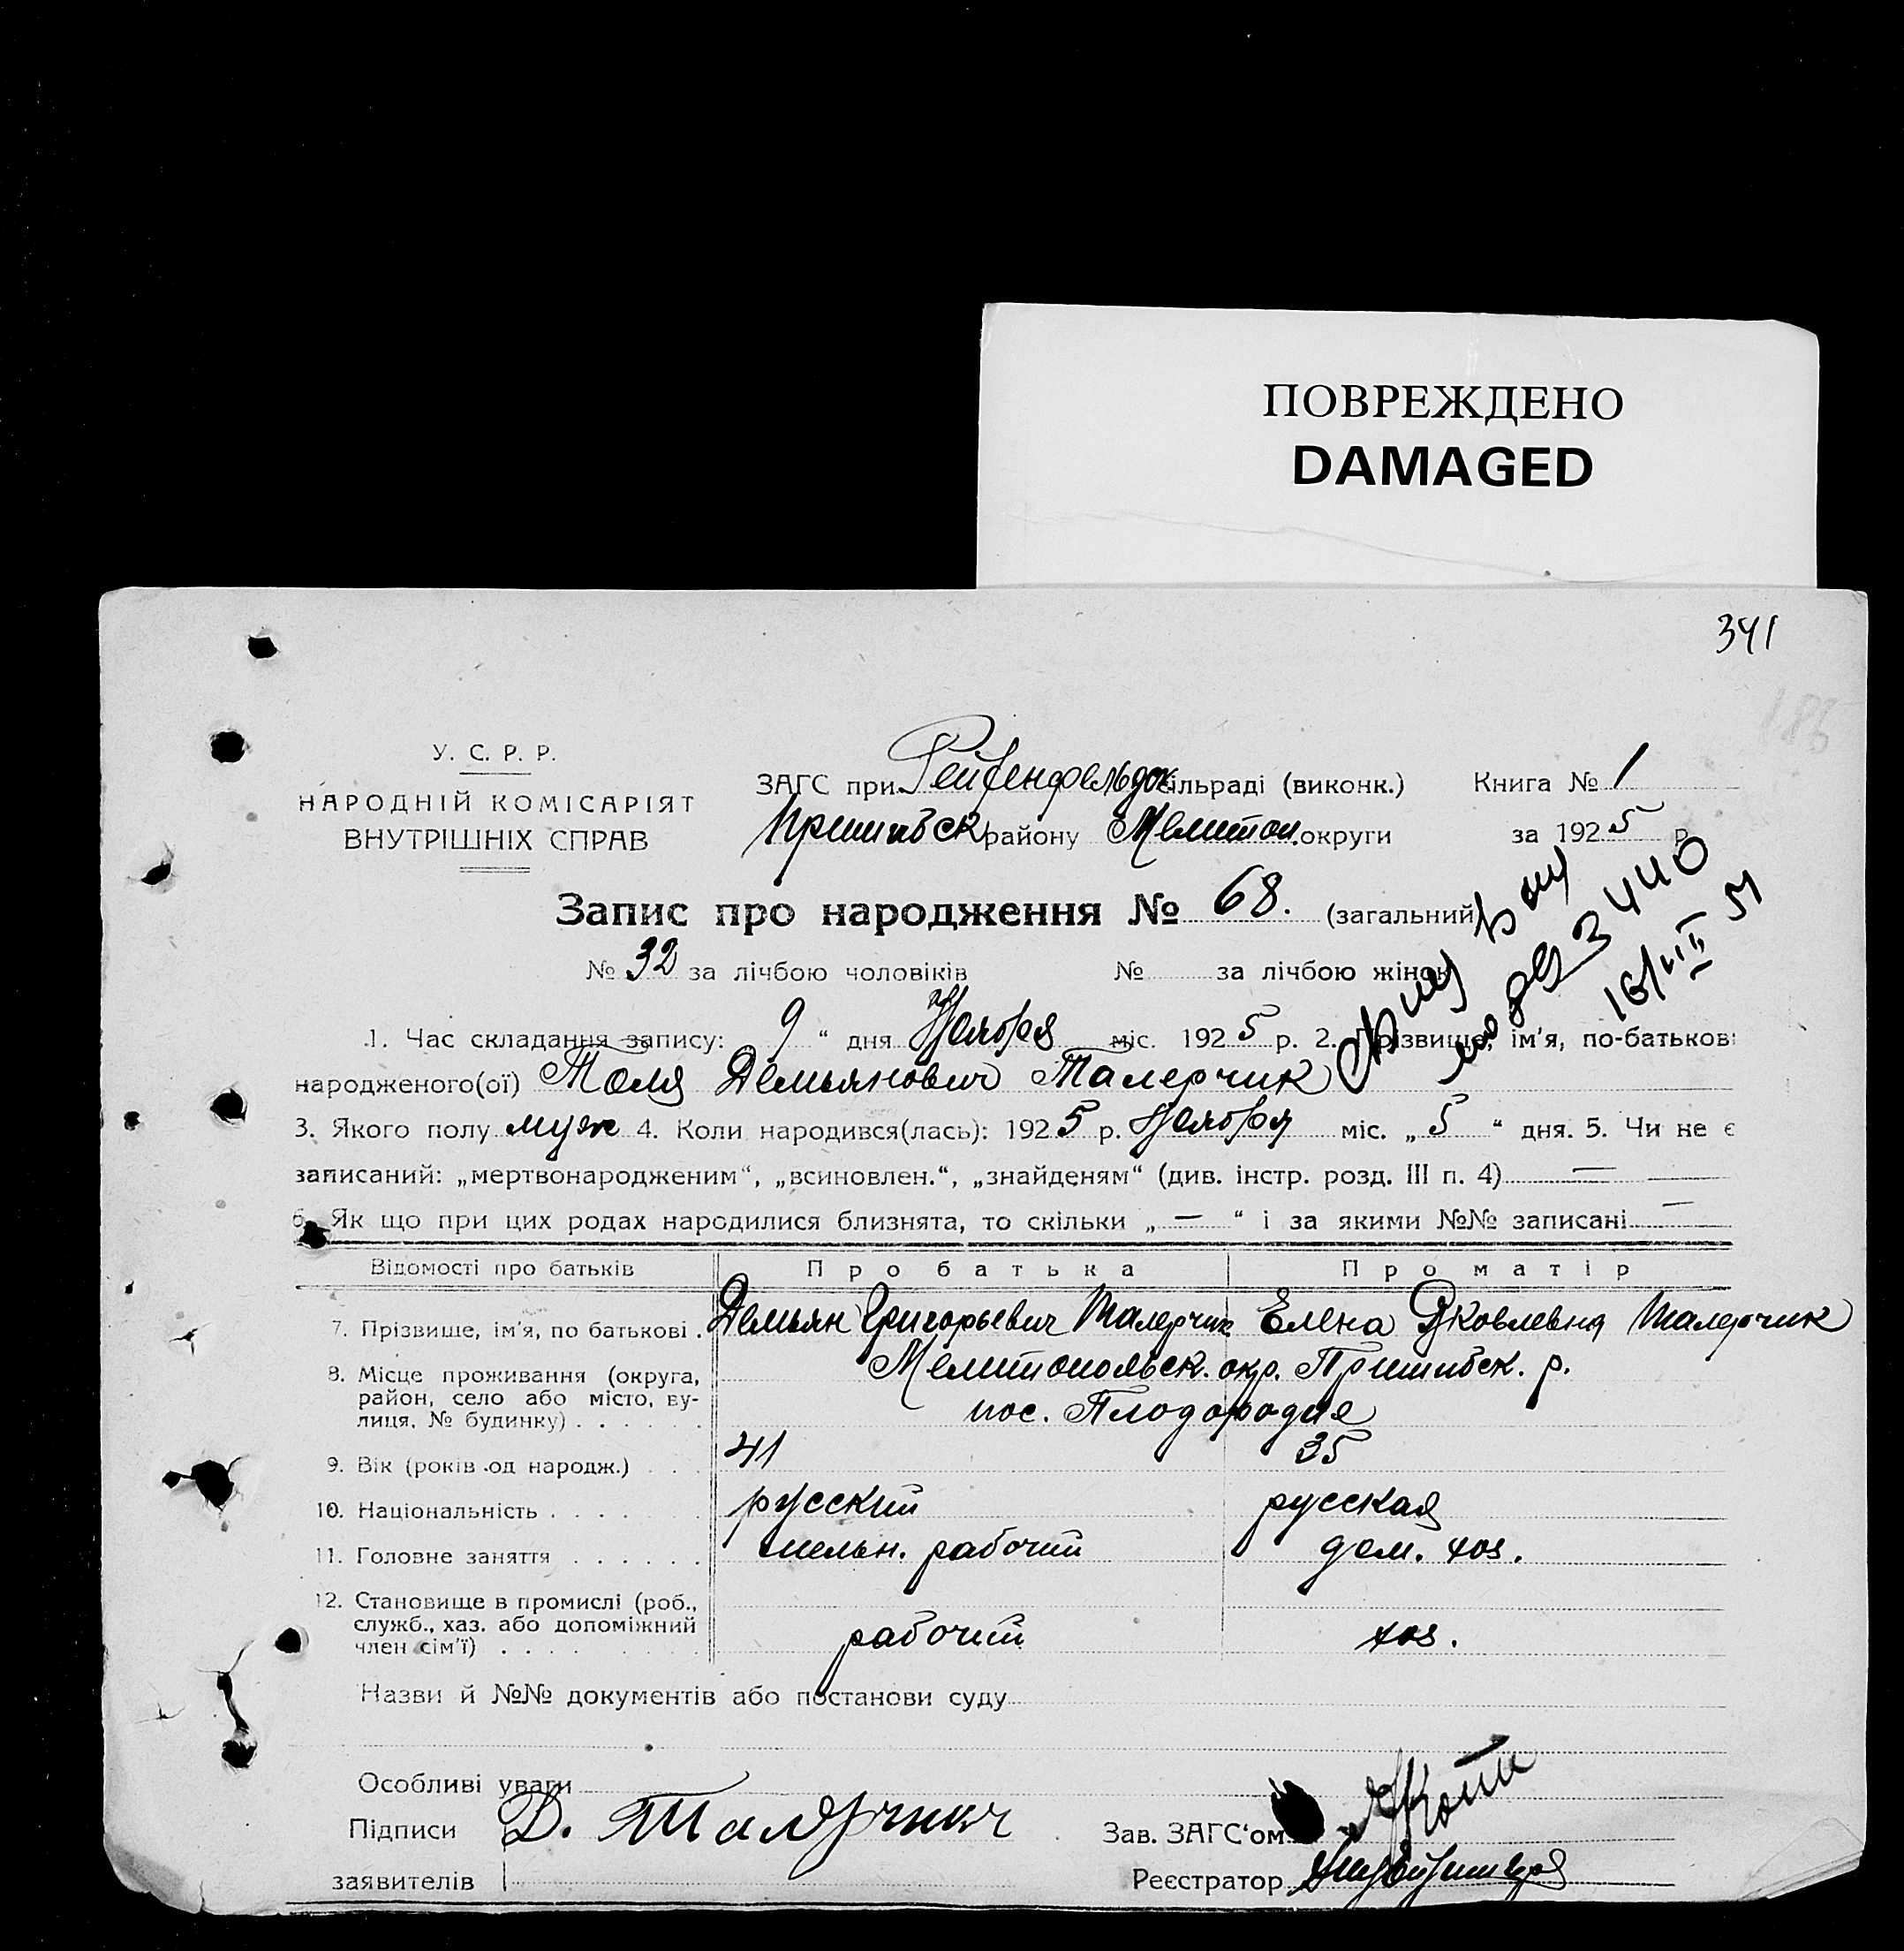 ПОВРЕЖДЕНО
DAMAGED
341
186
У. С. Р. Р.
НАРОДНІЙ КОМІСАРІЯТ
ВНУТРІШНІХ СПРАВ
ЗАГС при Рейхенфельдск сільраді (виконк.) Книга № 1
Пришибск району Мелитоп. округи за 1925 р
Запис про народження № 68. (загальний)
№ 32 за лічбою чоловіків № за лічбою жінок
16/VIII 51
1. Час складання запису: 9 " дня Ноября міс. 1925 р. 2. Прізвище, ім'я, по-батькові
народженого(ої) Толя Демьянович Талерчик
3. Якого полу муж 4. Коли народився(лась): 1925 р. Ноября міс. „ 5 " дня. 5. Чи не є
записаний: „мертвонародженим", „всиновлен.", „знайденям" (див. інстр. розд. III п. 4) —
6. Як що при цих родах народилися близнята, то скільки „ — " і за якими №№ записані —
Відомості про батьків Про батька Про матір
7. Прізвище, ім'я, по батькові . Демьян Григорьевич Талерчик Елена Яковлевна Талерчик
8. Місце проживання (округа, район, село або місто, вулиця, № будинку) . . . . . Мелитопольск. окр. Пришибск. р.
пос. Плодородие
9. Вік (років од народж.) . . . 41 35
10. Національність . . . . . русский русская
11. Головне заняття . . . . . . мельн. рабочий дом. хоз.
12. Становище в промислі (роб.,
служб., хаз. або допоміжний
член сім'ї) . . . . рабочий хоз.
Назви й №№ документів або постанови суду
Особливі уваги
Підписи Д. Талярчик Зав. ЗАГС'ом
заявителів Реєстратор